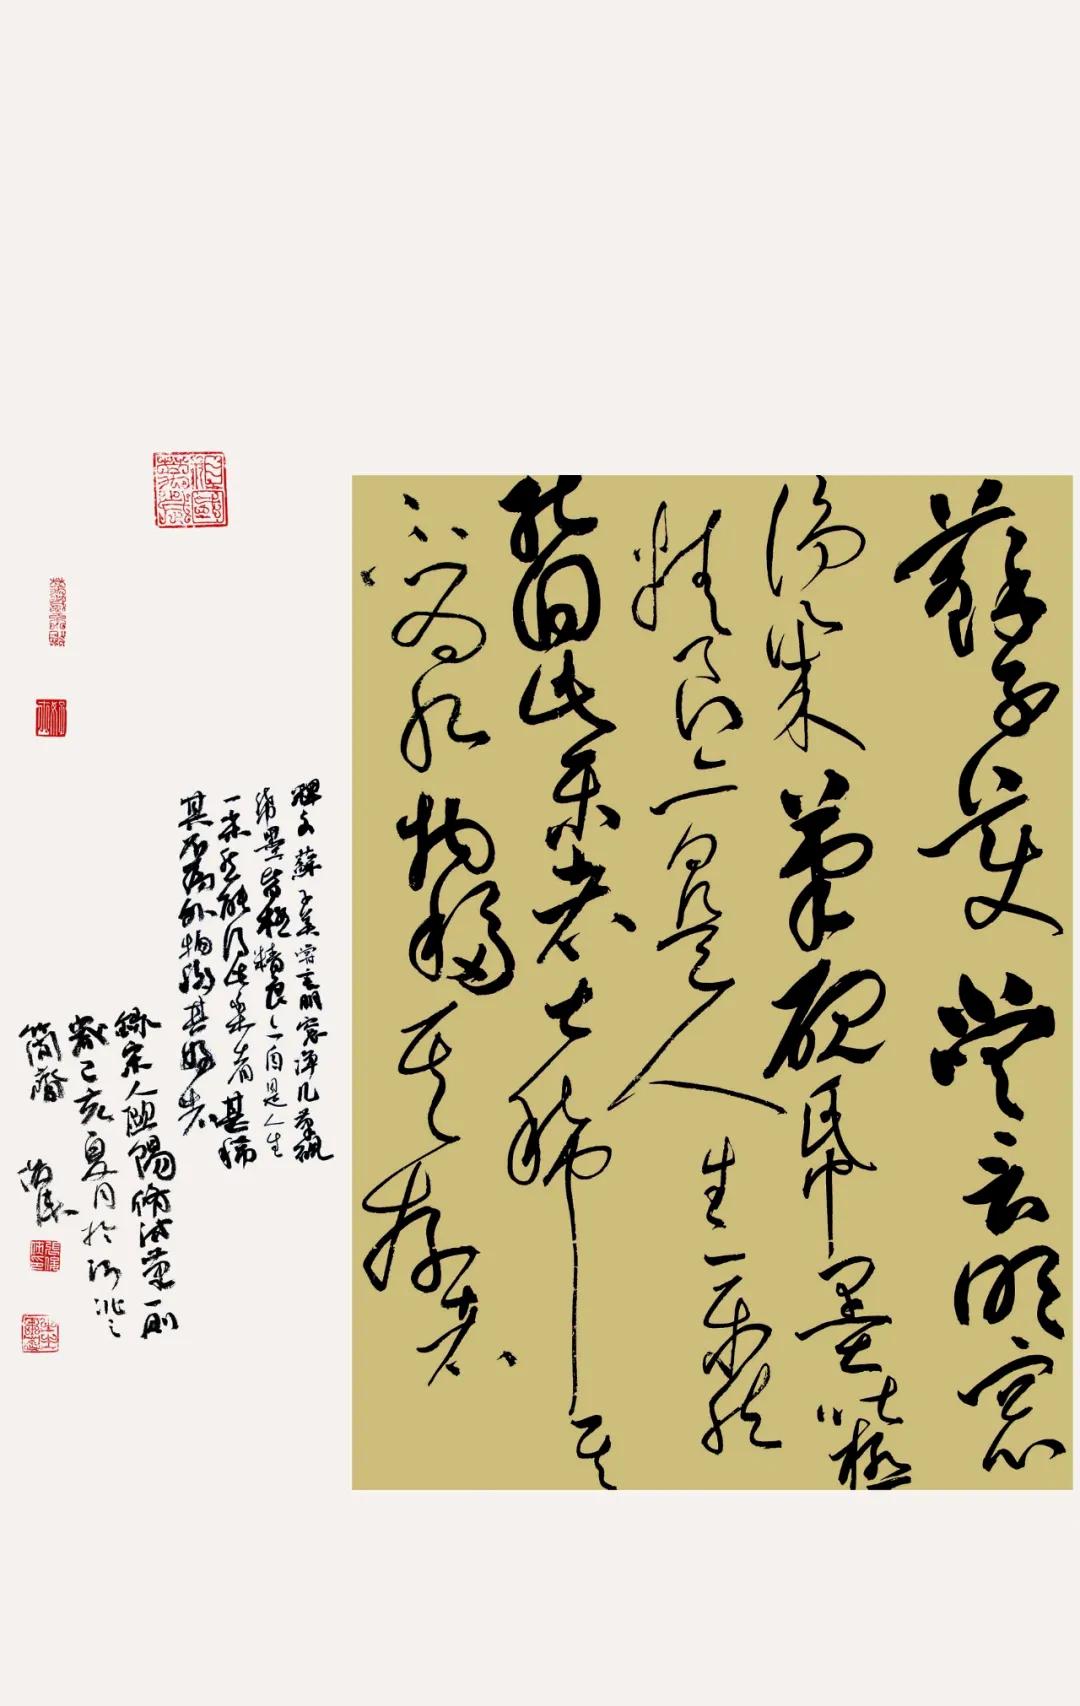 蘇子美嘗言明窓
淨几筆硯帋墨皆極
精良亦自是人生一樂然
能得此樂者甚稀其
不為外物移其好者
釋文蘇子美嘗言明窓淨几筆硯
紙墨皆極精良亦自是人生
一樂然能得此樂者甚稀
其不為外物移其好者
錄宋人歐陽脩試筆一則
歲己亥夏月於
簡齋